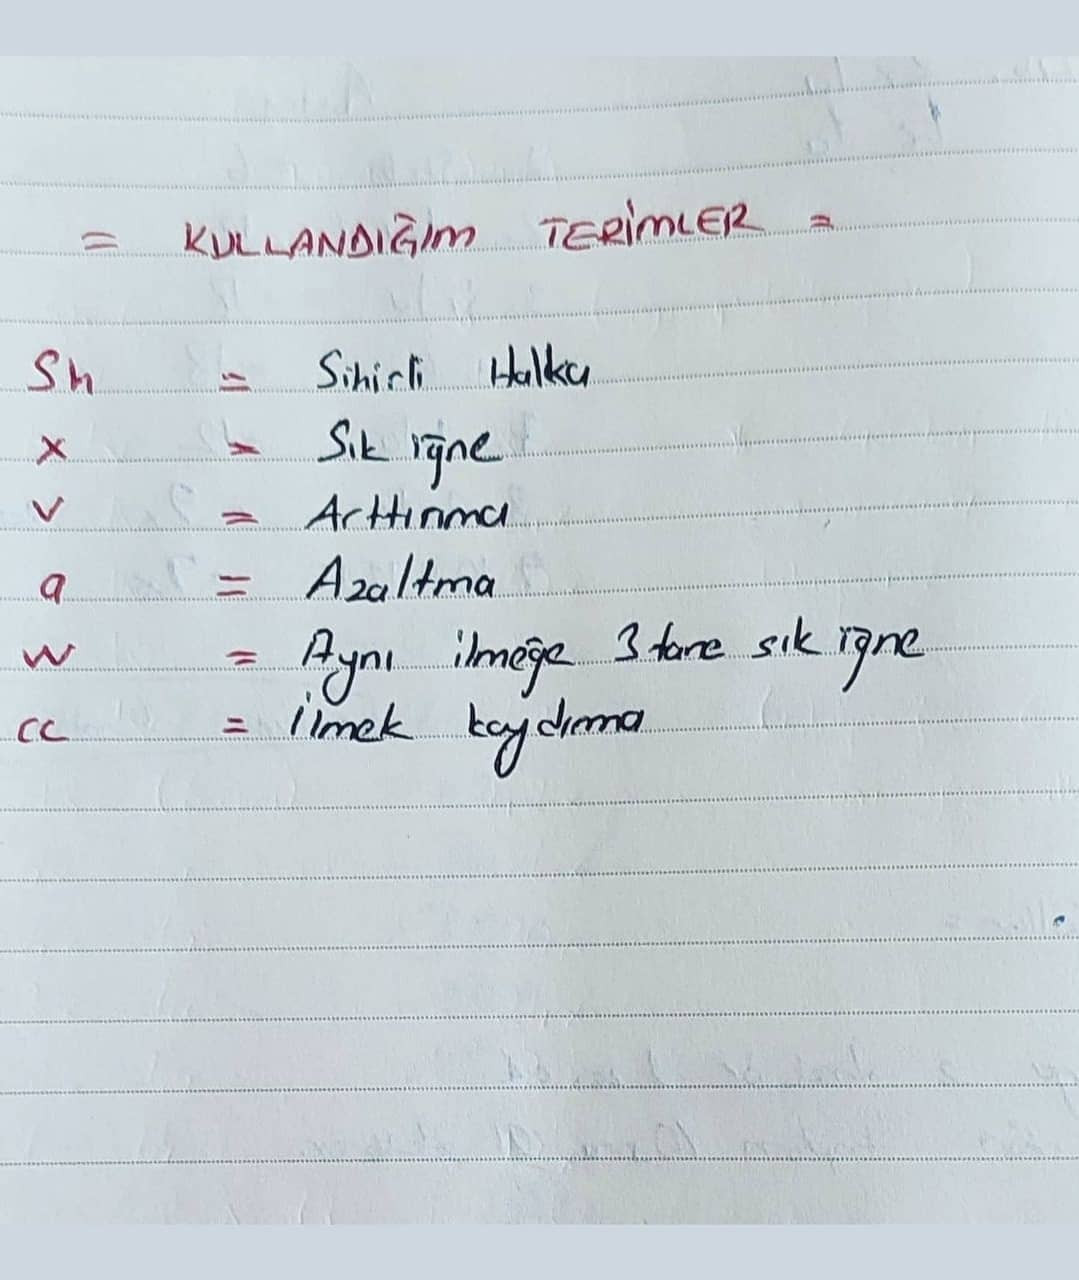 = KULLANDIĞIM TERİMLER =
Sh = Sihirli Halka
x = Sık iğne
v = Arttırma
a = Azaltma
w = Aynı ilmeğe 3 tane sık iğne
cc = ilmek kaydırma